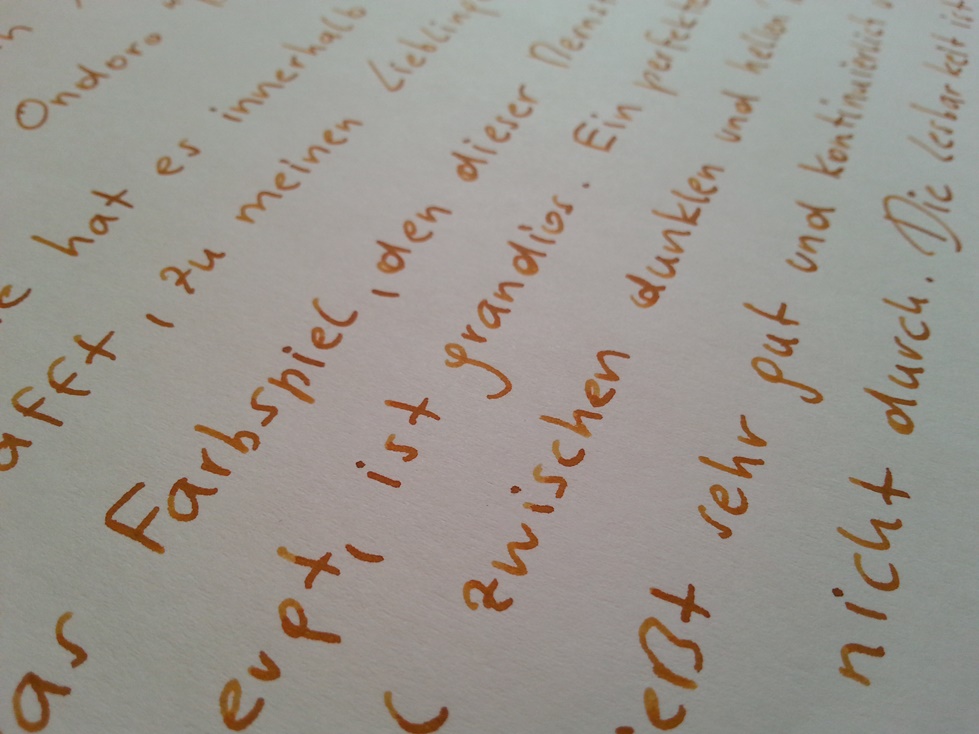 Ondoro
hat es innerhalb
afft, zu meinen Liebling
as Farbspiel, den dieser
eugt, ist grandios. Ein perfekte
zwischen dunklen und hellen
ießt sehr gut und kontinuierlich
nicht durch. Die Lesbarkeit ist